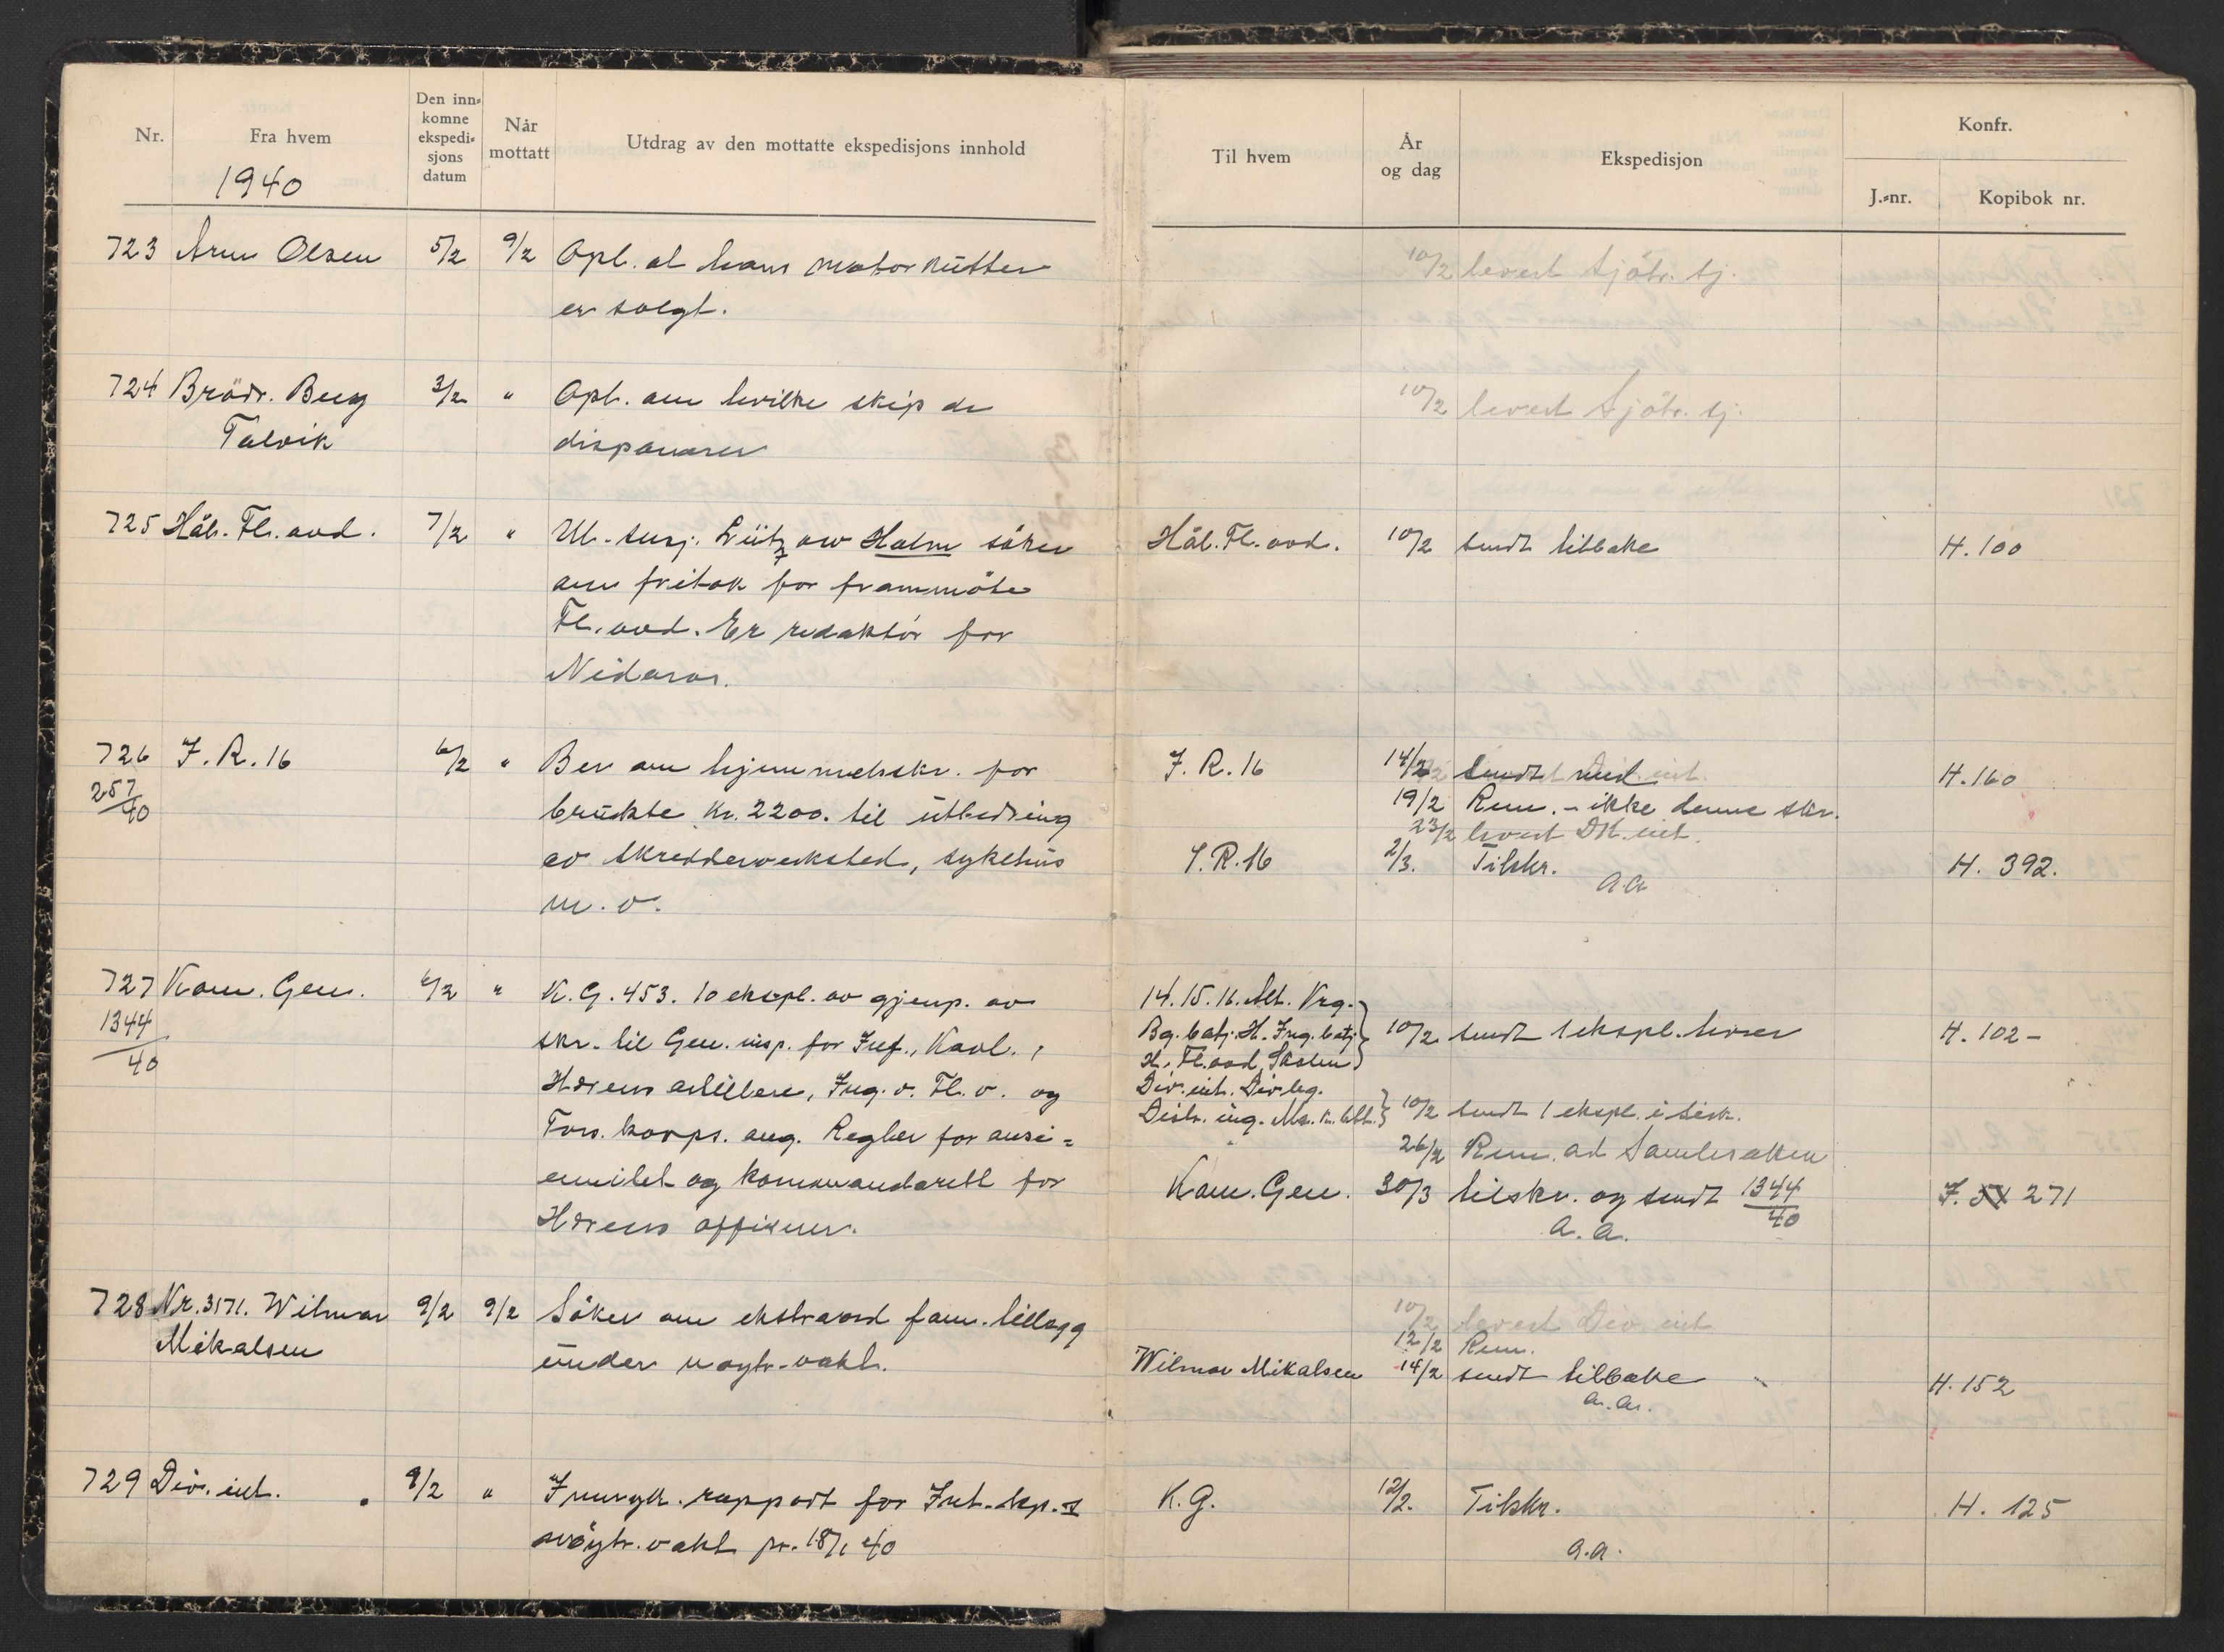 Nr.
Fra hvem
Den inn-
komne
ekspedi-
sjons
datum
Når
mottatt
Utdrag av den mottatte ekspedisjons innhold
1940
723 Arne Olsen 5/2 9/2 Opl. at hans motorkutter
er solgt.
724 Brödr. Berg 3/2 " Opl. om hvilke skip de
Talvik
disponerer
725 Hål. Fl. avd. 7/2 " Lützow Holm söker
om fritak for frammöte
Fl. avd. Er redaktör for
Nidaros.
726 I. R. 16 6/2 " Ber om hjemmelsskr. for
257/40
brukte kr. 2200. til utbedring
av skredderverksted, sykehus
m. v.
727 Kom. Gen. 6/2 " K. G. 453. 10 ekspl. av gjenp. av
1344/40
skr. til Gen. insp. for Inf., Kavl.,
Hærens artilleri, Ing. v. Fl. v. og
Tros. korps. ang. Regler for ansi=
ennitet og kommandorett for
Hærens offiserer.
728 Nr. 3171. Wilmar 9/2 9/2 Söker om ekstraord fam. tillegg
Mikalsen
under nöytr. vakt.
729 Div. int. 9/2 " Innrykk. rapport for Int. kp. I
nöytr. vakt pr. 18/1 40
Til hvem
År
og dag
Ekspedisjon
Konfr.
J.-nr.
Kopibok nr.
10/2 levert Sjötr. tj.
10/2 levert Sjötr. tj.
Hål. Fl. avd. 10/2 sendt tilbake H. 100
I. R. 16 14/2 sendt ned H. 160
19/2 Rem. - ikke denne skr.
23/2 levert DK. int.
I. R. 16 2/3. Tilskr. H. 392.
a.a
14. 15. 16. Alt. Vrg.
Bg. batj. H. Ing. batj. 10/2 sendt 1 ekspl. hver H. 102 -
H. Fl. avd. Skolen
Div. int. Div. leg.
Distr. ing. 10/2 sendt 1 ekspl. i sirk.
" 26/2 Rem. ad Samlesaken
Kom. Gen. 30/3 tilskr. og sendt 1344/40 J. 271
a. a.
10/2 levert Div int
12/2 Rem.
Wilmar Mikalsen 14/2 sendt tilbake H. 152
a. a.
K. G. 12/2. Tilskr. H. 125
a.a.